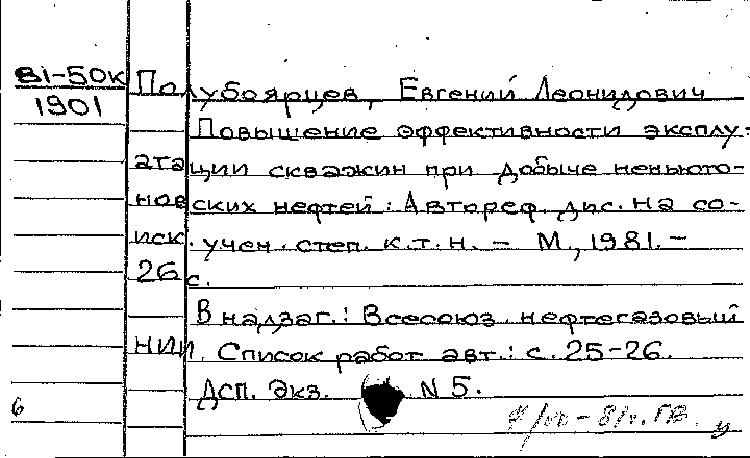 81-50к
1901
Полубоярцев, Евгений Леонидович
Повышение эффективности эксплу-
атации скважин при добыче неньюто-
новских нефтей: Автореф. дис. на со-
иск. учен. степ. к.т.н. - М., 1981. -
26 с.
В надзаг.: Всесоюз. нефтегазовый
НИИ. Список работ авт.: с. 25-26.
Дсп. Экз. N 5.
6